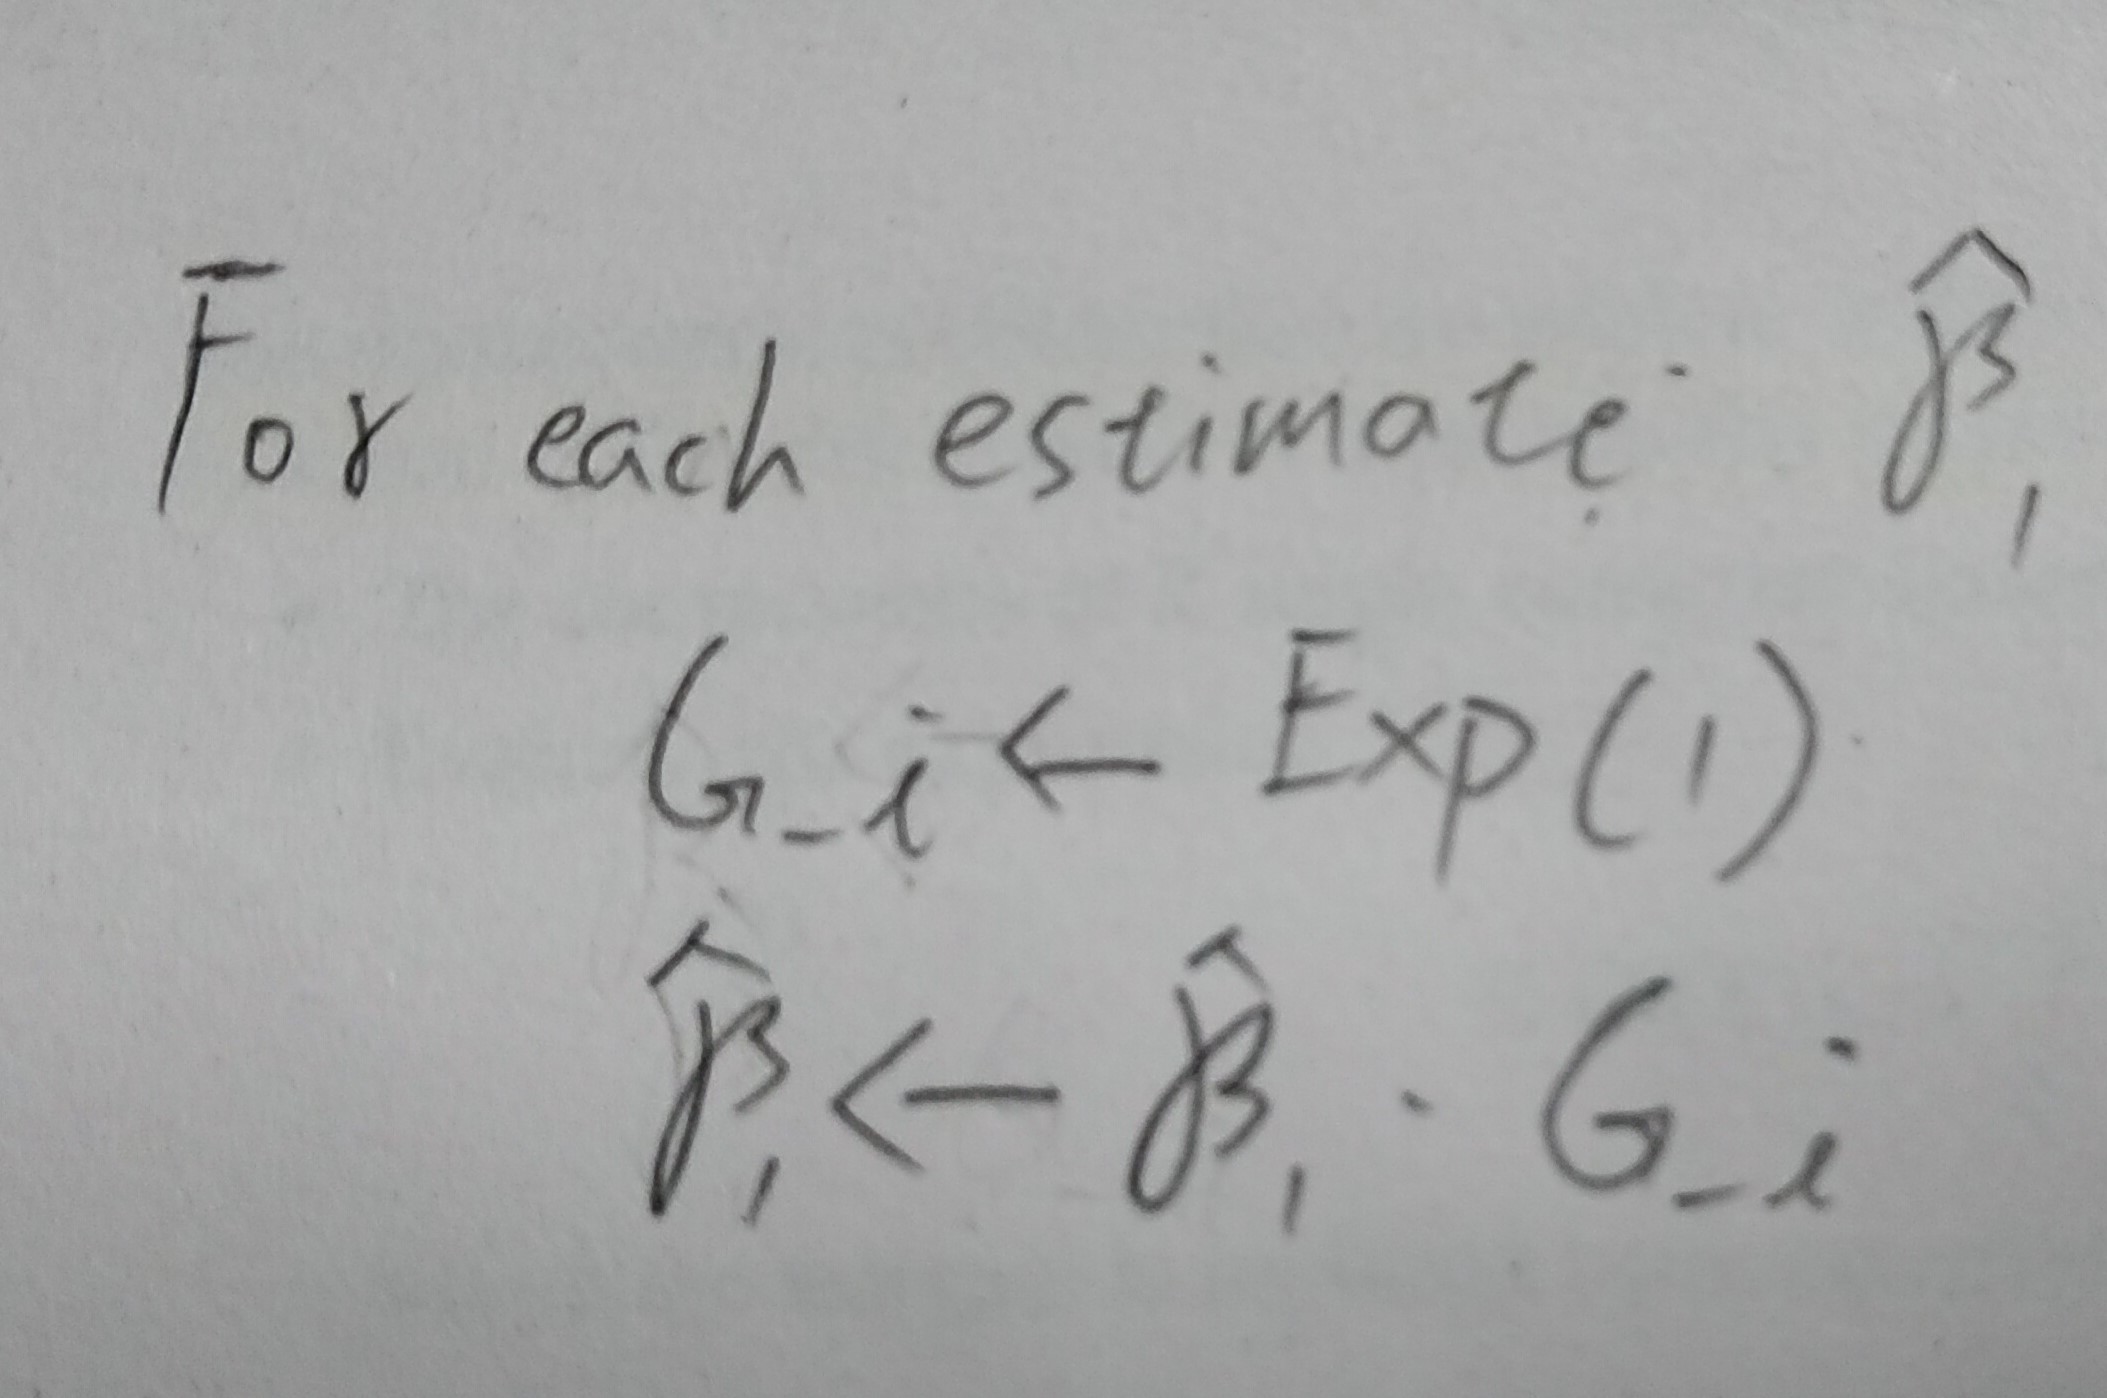 For each estimate β̂₁
G_i ← Exp(1)
β̂₁ ← β̂₁ · G_i